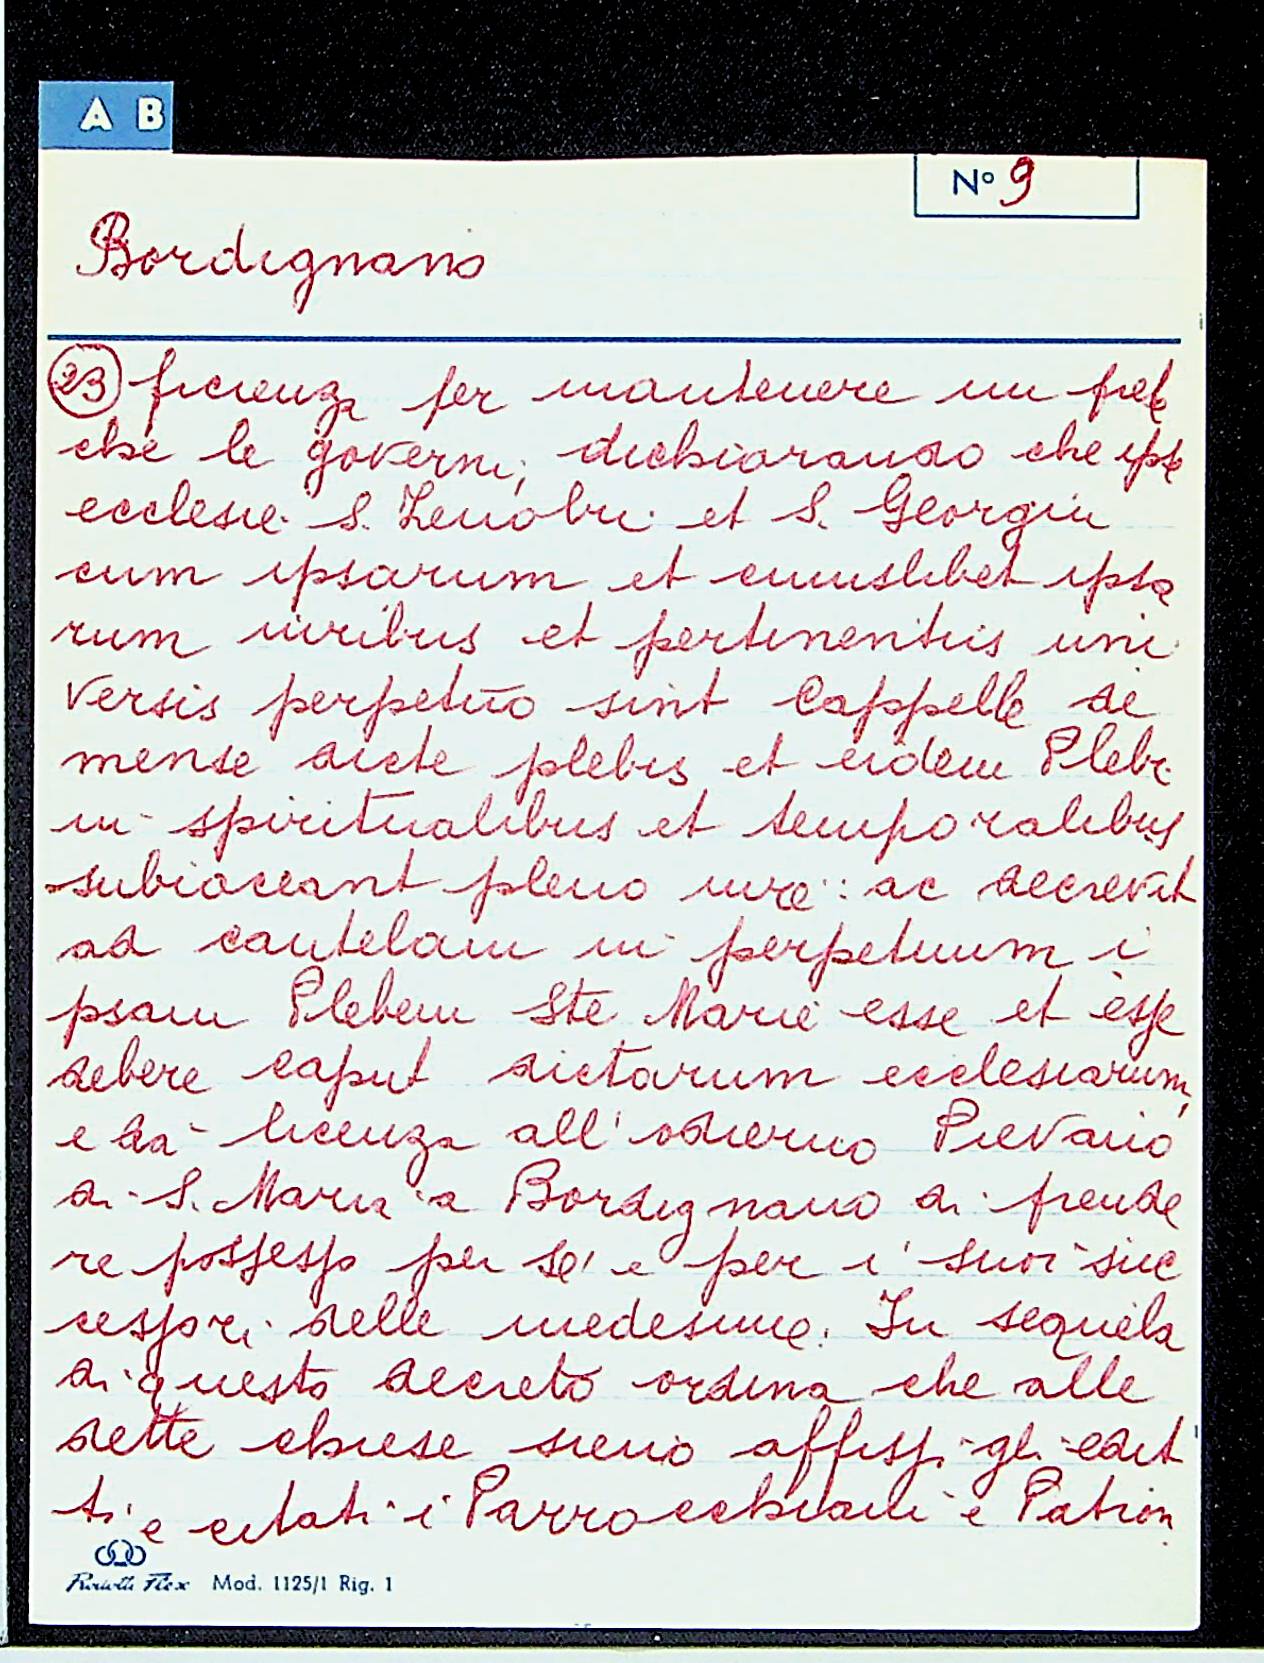 A B
Nº 9
Bordignano
23 ficienza per mantenere un prete
che le governi; dichiarando che ipse
ecclesie S. Zenobii et S. Georgii
cum ipsarum et cuiuslibet ipsa
rum iuribus et pertinentiis uni
versis perpetuo sint Cappelle de
mense dicte plebis et eidem Plebi
in spiritualibus et temporalibus
subiaceant pleno iure: ac decrevit
ad cautelam in perpetuum i
psam Plebem Ste Marie esse et esse
debere caput dictarum ecclesiarum,
e dà licenza all'odierno Pievano
di S. Maria a Bordignano di prende
re possesso per sé e per i suoi suc
cessori delle medesime. In sequela
di questo decreto ordina che alle
dette chiese sieno affissi gli edit
ti e citati i Parrocchiani e Patron
Mod. 1125/1 Rig. 1